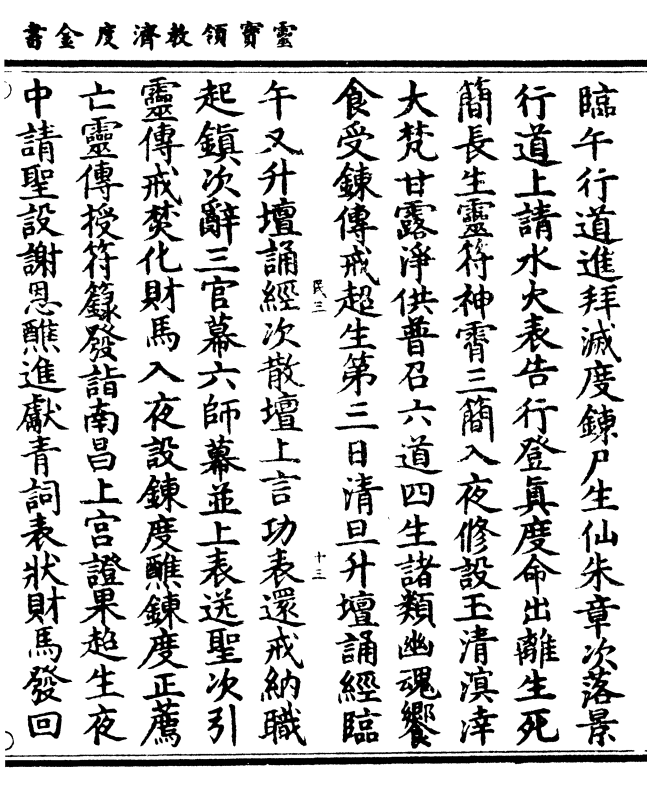 靈寶領教濟度金書
臨午行道進拜滅度鍊尸生仙朱章次落景
行道上請水火表告行登真度命出離生死
簡長生靈符神霄三簡入夜修設玉清滇涬
大梵甘露淨供普召六道四生諸類幽魂饗
食受鍊傳戒超生第三日清旦升壇誦經臨
民三
十三
午又升壇誦經次散壇上言功表還戒納職
起鎮次辭三官幕六師幕並上表送聖次引
靈傳戒焚化財馬入夜設鍊度醮鍊度正薦
亡靈傳授符籙發詣南昌上宮證果超生夜
中請聖設謝恩醮進獻青詞表狀財馬發回